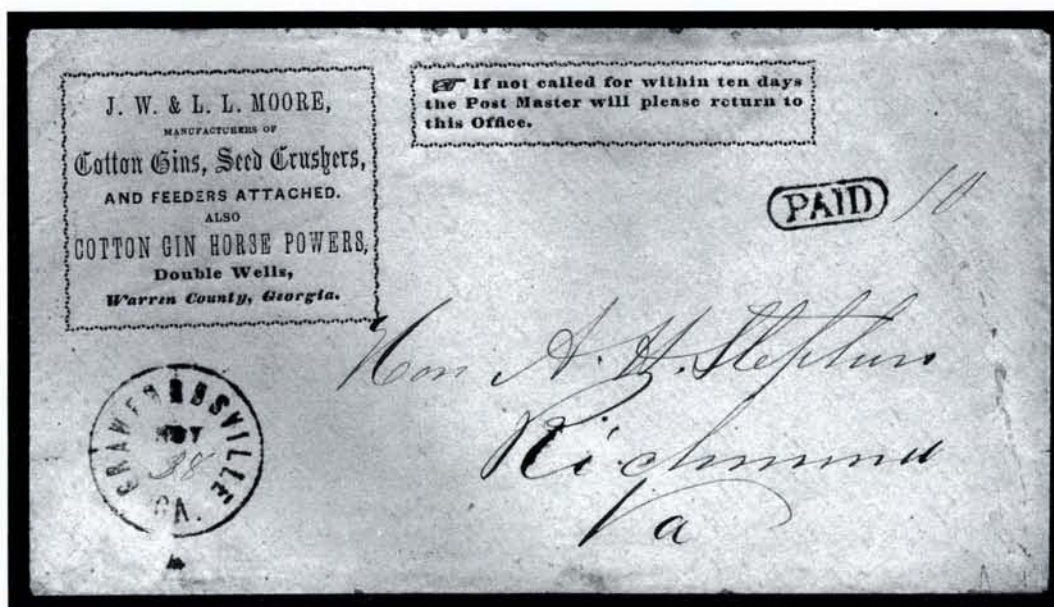 J. W. & L. L. MOORE,
MANUFACTURERS OF
Cotton Gins, Seed Crushers,
AND FEEDERS ATTACHED.
ALSO
COTTON GIN HORSE POWERS,
Double Wells,
Warren County, Georgia.
☞ If not called for within ten days
the Post Master will please return to
this Office.
PAID 10
Hon A. H. Stephens
Richmond
Va
CRAWFORDSVILLE
NOV
28
GA.